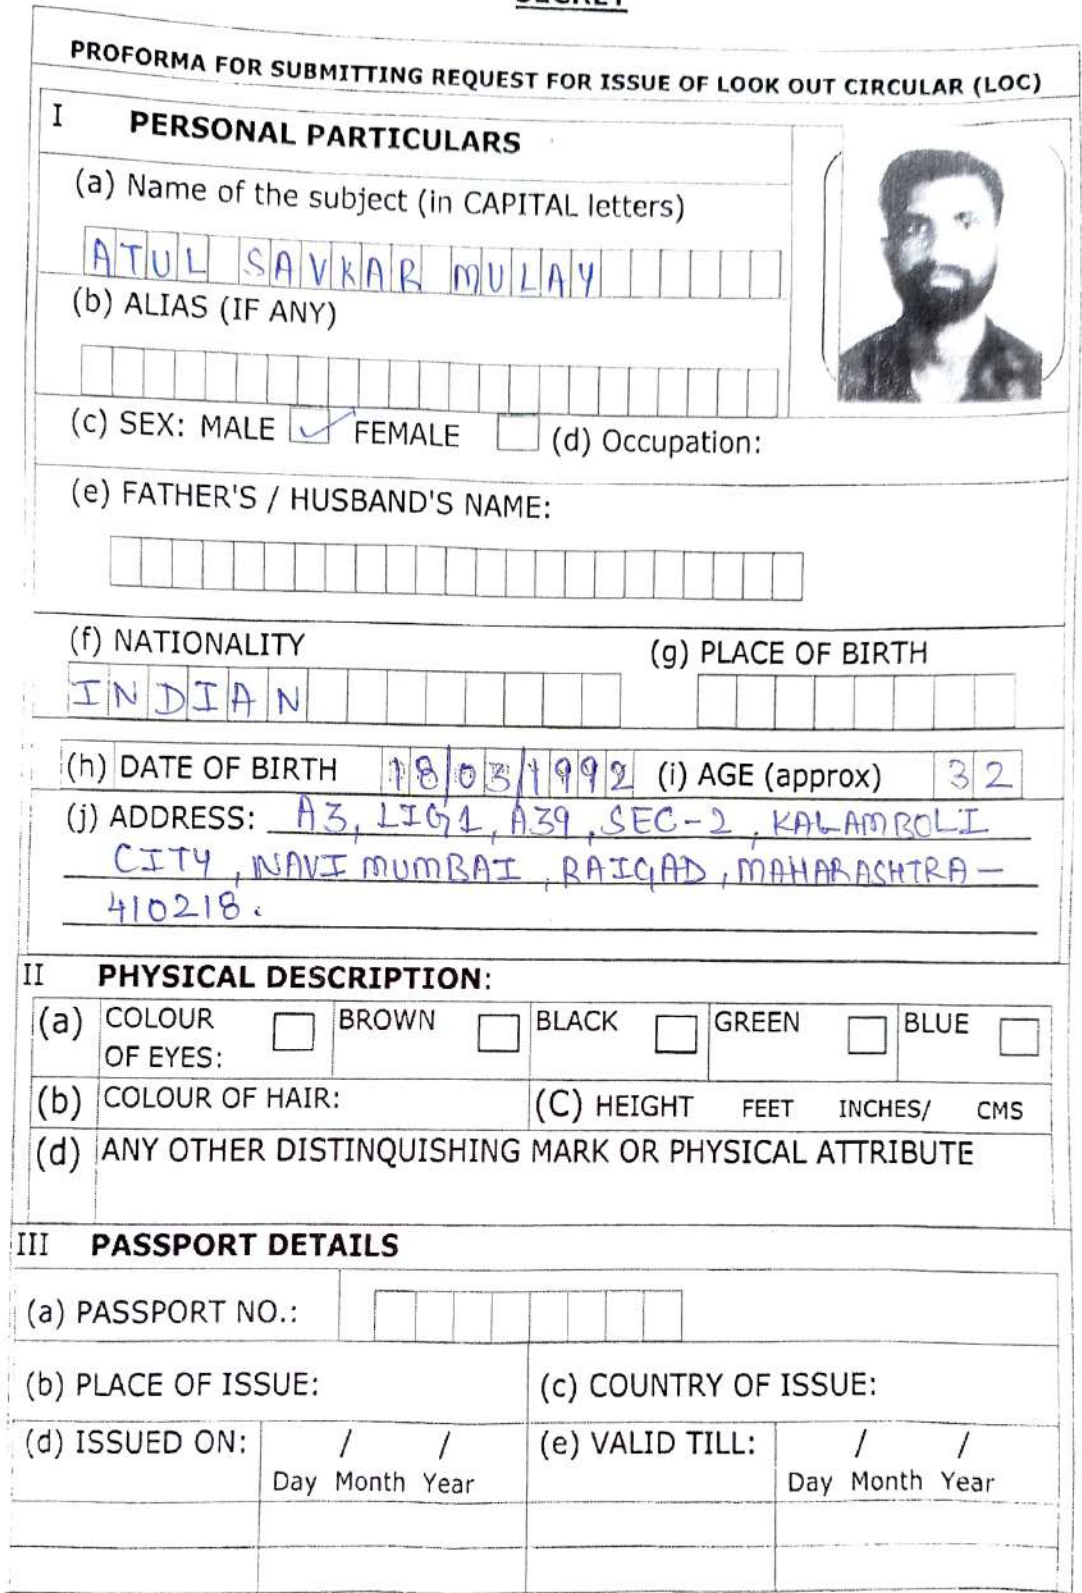 SECRET
PROFORMA FOR SUBMITTING REQUEST FOR ISSUE OF LOOK OUT CIRCULAR (LOC)
I PERSONAL PARTICULARS
(a) Name of the subject (in CAPITAL letters)
ATUL SAVKAR MULAY
(b) ALIAS (IF ANY)
(c) SEX: MALE FEMALE (d) Occupation:
(e) FATHER'S / HUSBAND'S NAME:
(f) NATIONALITY (g) PLACE OF BIRTH
INDIAN
(h) DATE OF BIRTH 18/03/1992 (i) AGE (approx) 32
(j) ADDRESS: A3, LIG1, A39, SEC-2, KALAMBOLI
CITY, NAVI MUMBAI, RAIGAD, MAHARASHTRA-
410218.
II PHYSICAL DESCRIPTION:
(a) COLOUR OF EYES: BROWN BLACK GREEN BLUE
(b) COLOUR OF HAIR: (C) HEIGHT FEET INCHES/ CMS
(d) ANY OTHER DISTINQUISHING MARK OR PHYSICAL ATTRIBUTE
III PASSPORT DETAILS
(a) PASSPORT NO.:
(b) PLACE OF ISSUE: (c) COUNTRY OF ISSUE:
(d) ISSUED ON: / / (e) VALID TILL: / /
Day Month Year Day Month Year